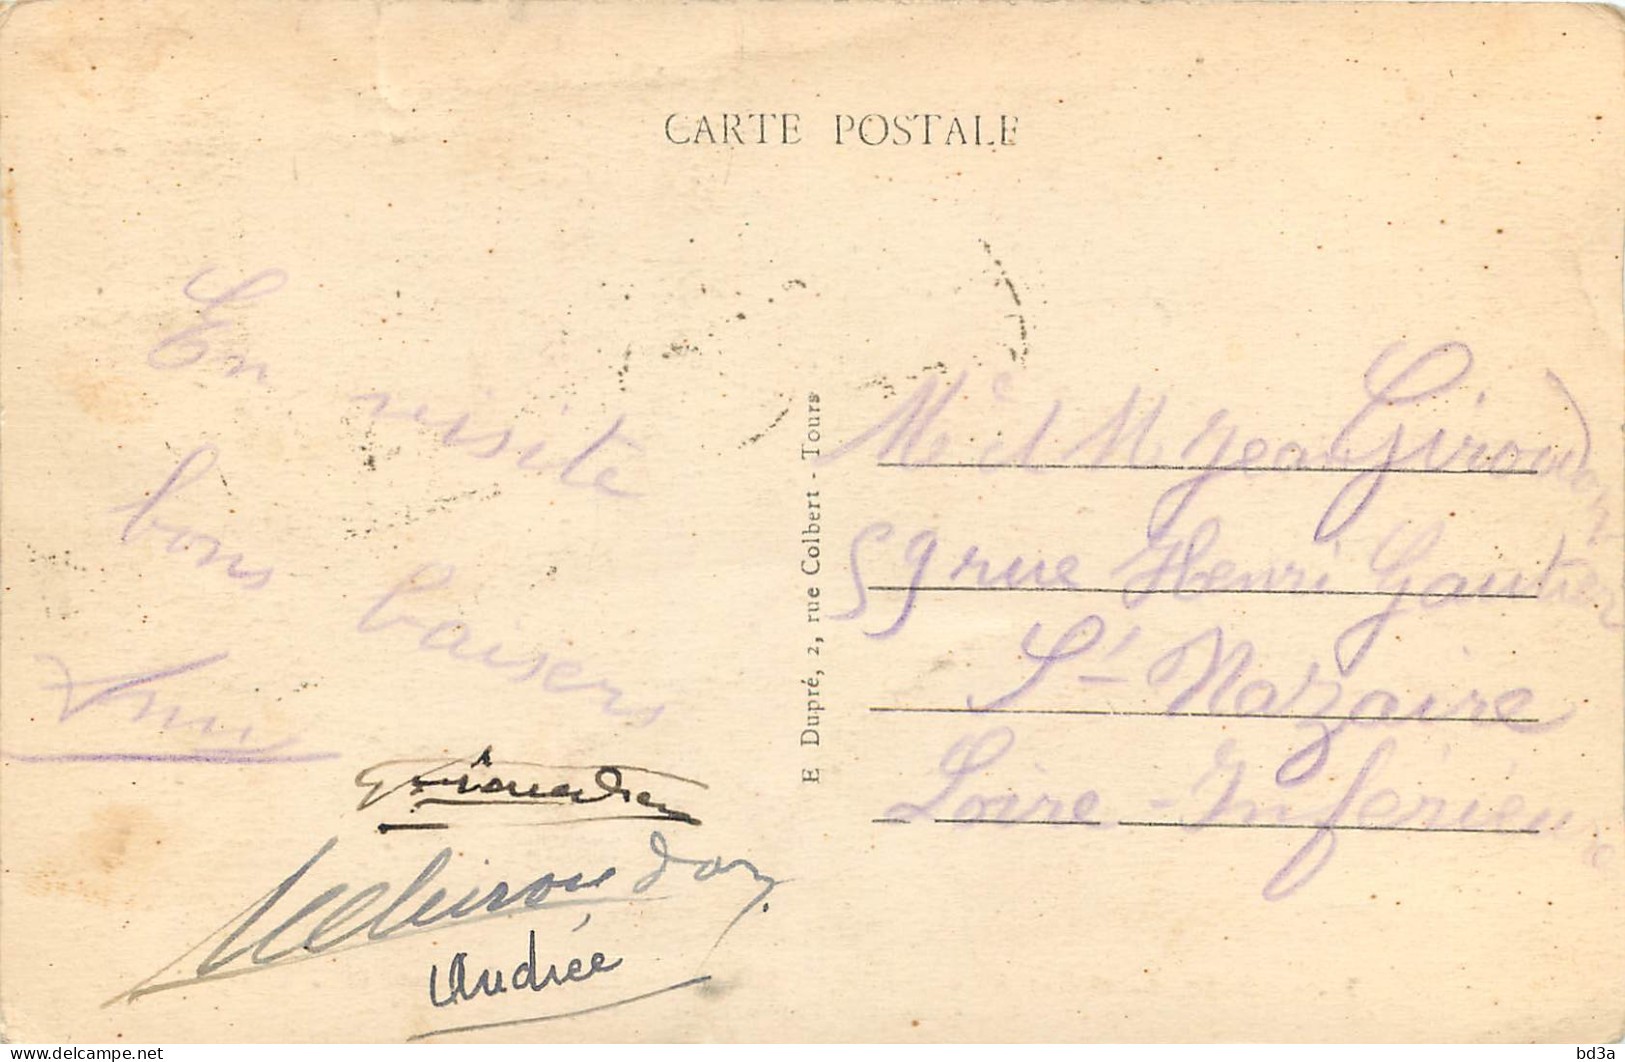 CARTE POSTALE
En visite
bons baisers
E Dupré, 2, rue Colbert - Tours
Me et M Jean Giroudon
59 rue Henri Gautier
St Nazaire
Loire-Inférieure
Andrée
delcampe.net
bd3a